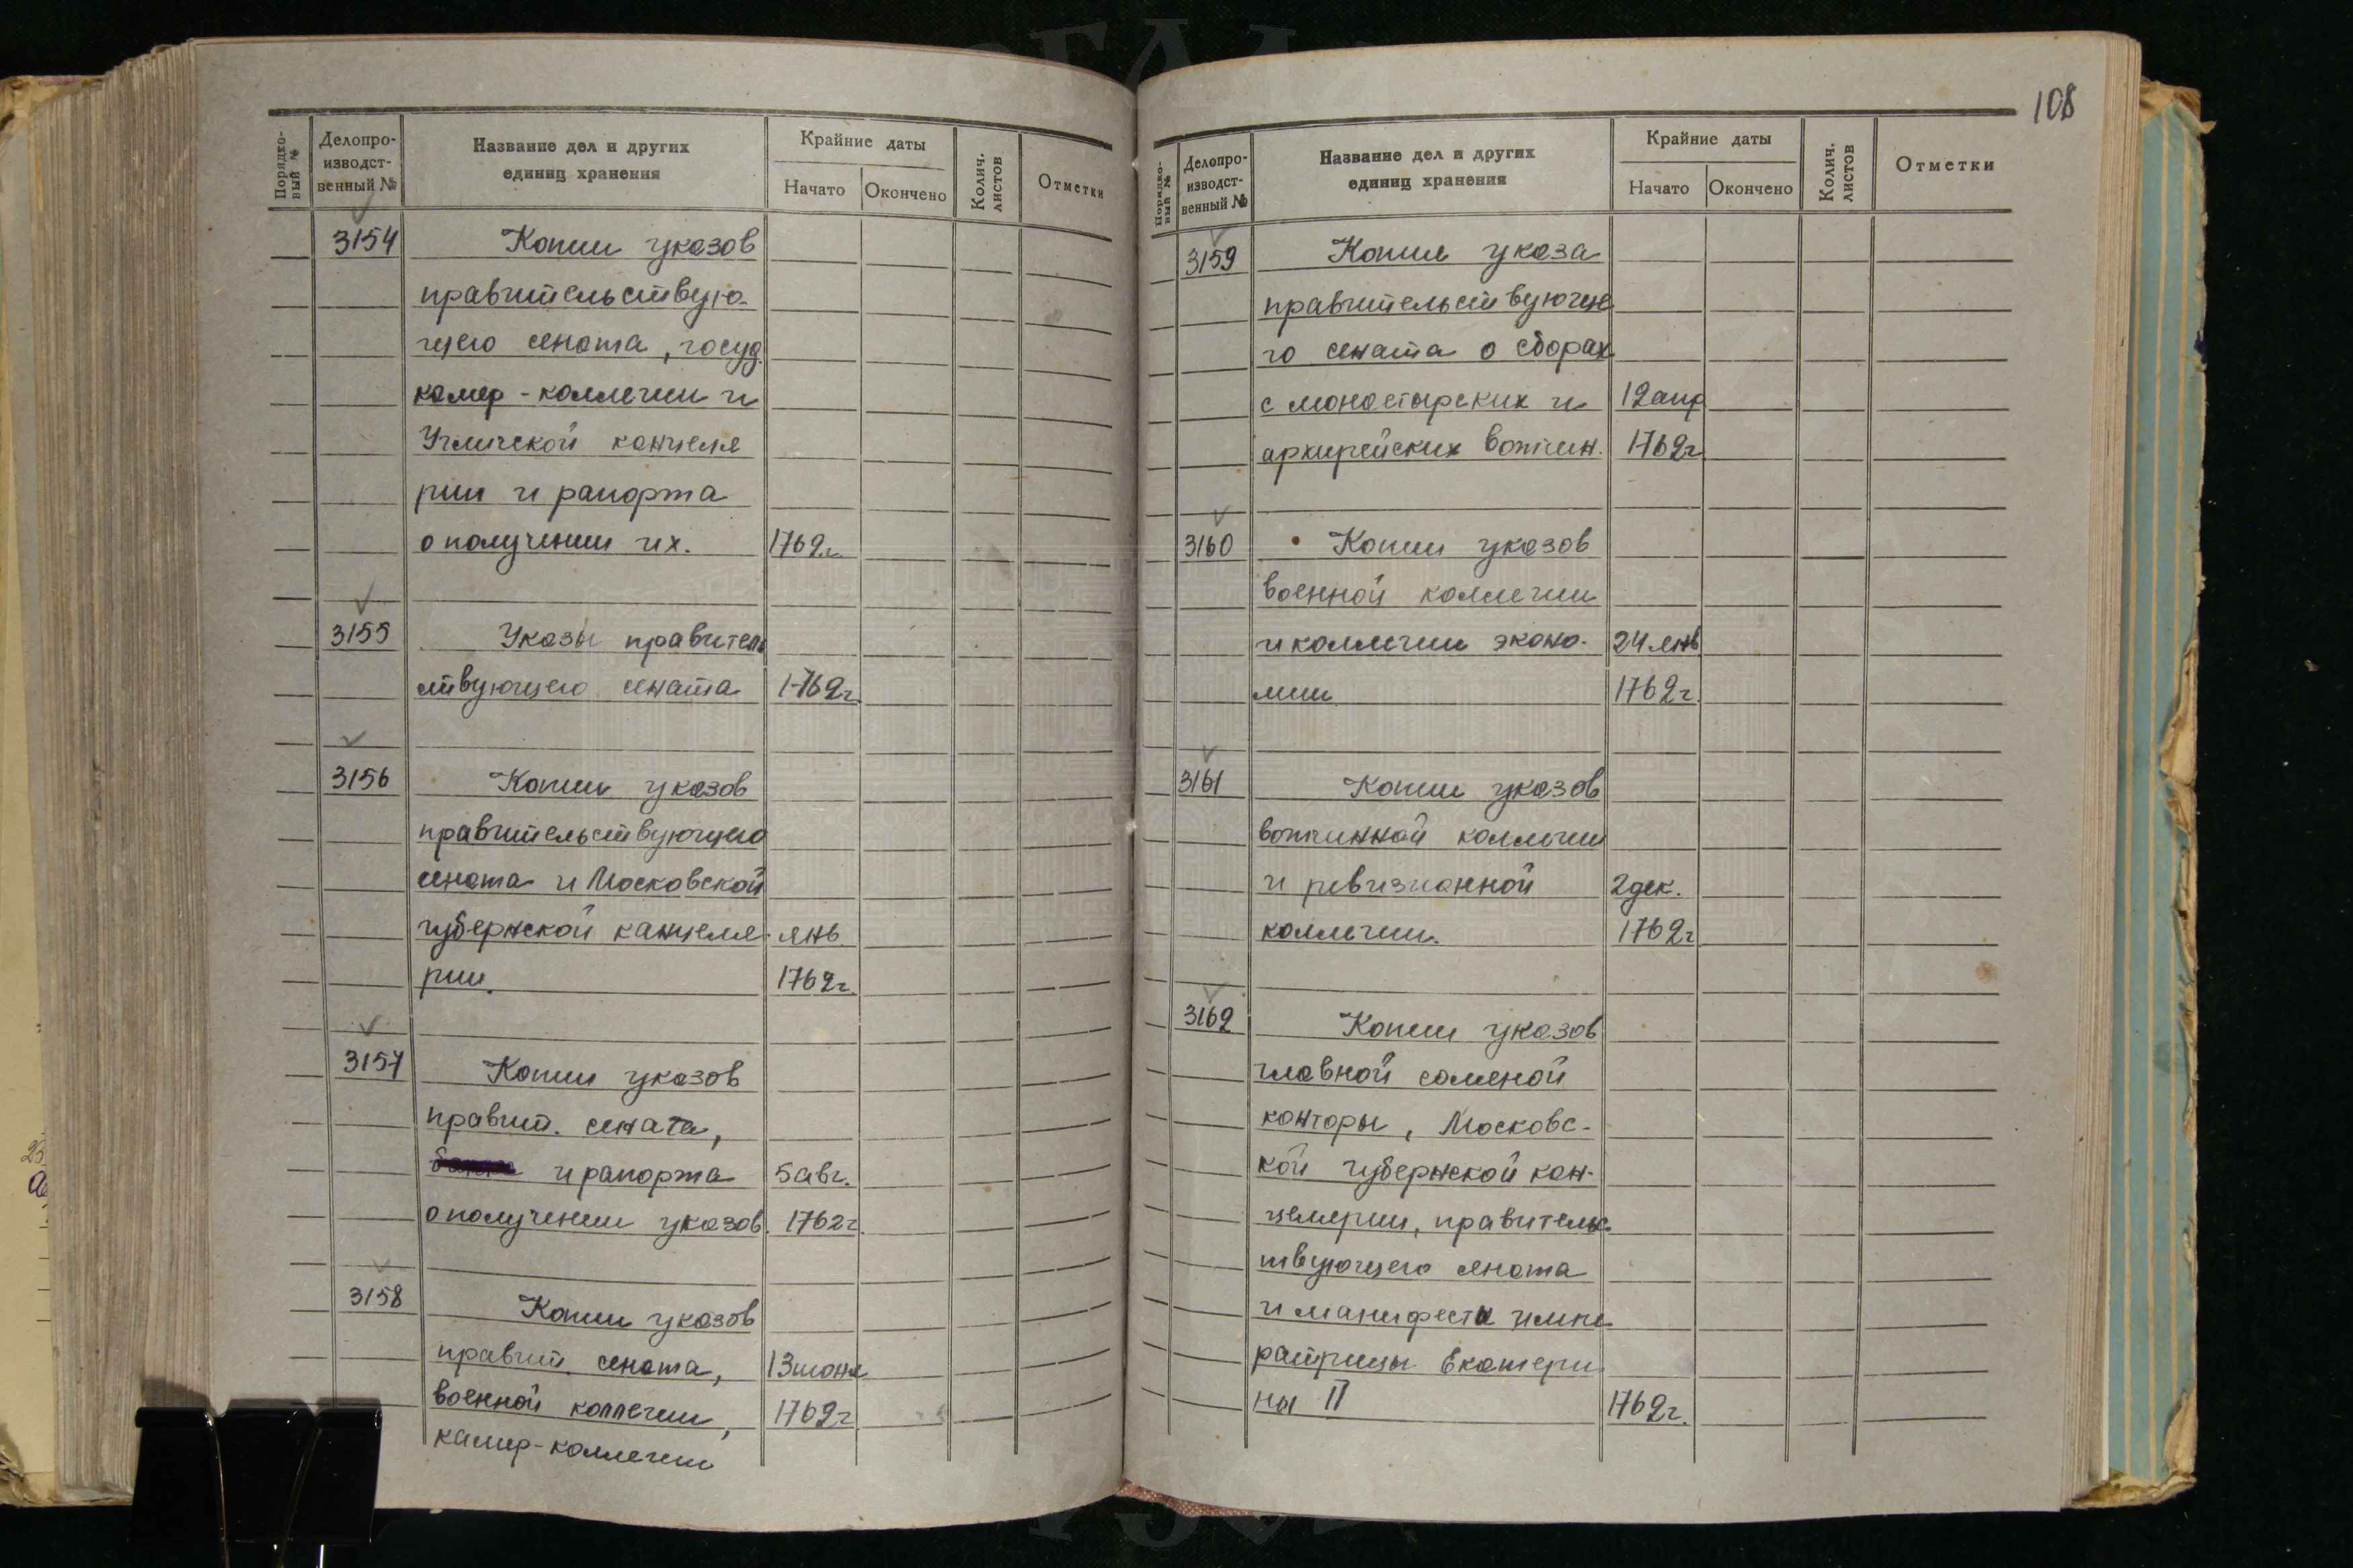 108
Порядко-
вый №
Делопро-
изводст-
венный №
Название дел и других
единиц хранения
Крайние даты
Начато
Окончено
Колич.
листов
Отметки
3154 Копии указов
правительствую-
щего сената, госуд.
камер-коллегии и
Угличской канцеля
рии и рапорта
о получении их. 1762г.
3155 Указы правитель
ствующего сената 1762г.
3156 Копии указов
правительствующего
сената и Московской
губернской канцеля- янв.
рии. 1762г.
3157 Копии указов
правит. сената,
и рапорта 5 авг.
о получении указов. 1762г.
3158 Копии указов
правит. сената, 13 июня
военной коллегии, 1762г.
камер-коллегии
Порядко-
вый №
Делопро-
изводст-
венный №
Название дел и других
единиц хранения
Крайние даты
Начато
Окончено
Колич.
листов
Отметки
3159 Копия указа
правительствующе
го сената о сборах
с монастырских и 12 апр
архирейских вотчин. 1762г
3160 Копии указов
военной коллегии
и коллегии эконо- 24 янв
мии 1762г.
3161 Копии указов
вотчинной коллегии
и ревизионной 2 дек.
коллегии. 1762г
3162 Копии указов
главной соляной
конторы, Московс-
кой губернской кан-
целерии, правительс
твующего сената
и манифеста импе
ратрицы Екатери
ны II 1762г.